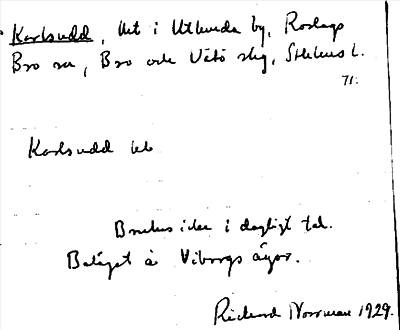 Karlsudd, lht i Utlunda by, Roslags
Bro sn, Bro och Vätö skg, Sthlms l.
71:
Karlsudd lht
Brukas icke i dagligt tal.
Beläget å Viborgs ägor.
Rickard Norrman 1929.